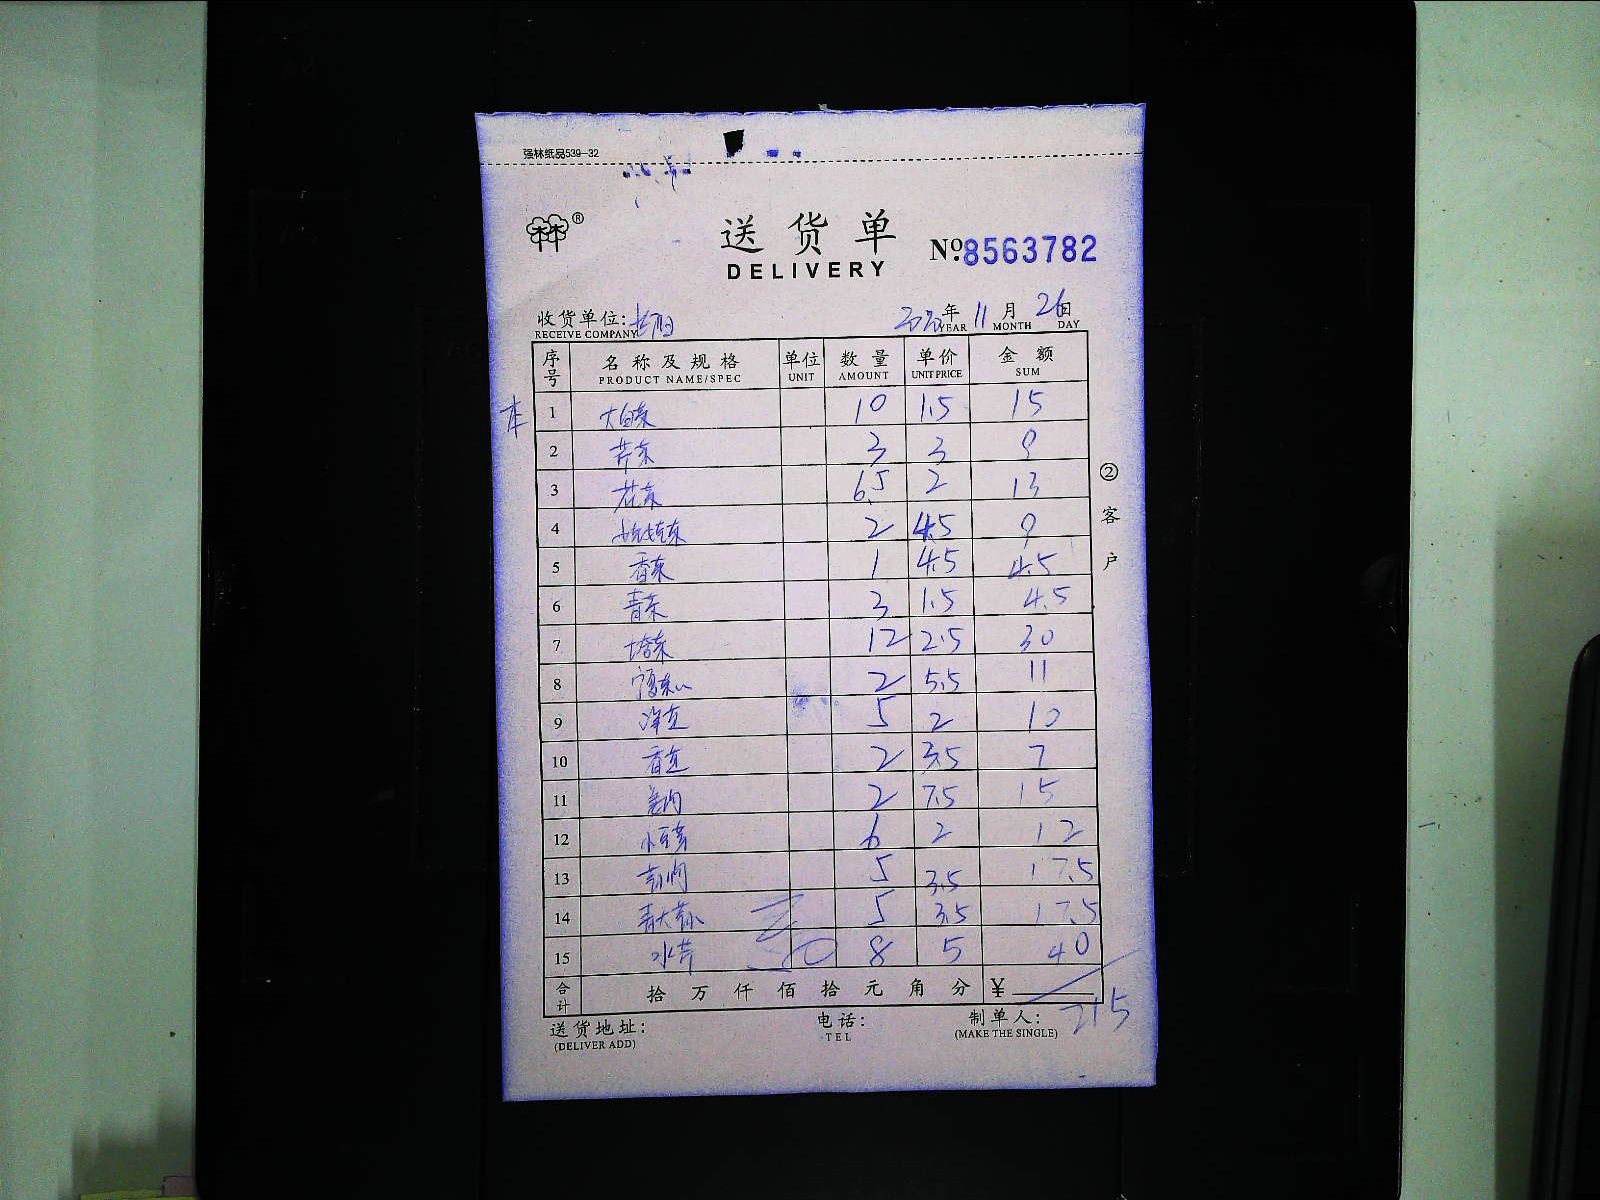 强林纸品539-32
送货单
DELIVERY
№:8563782
收货单位:
RECEIVE COMPANY
年 11 月 26 日
YEAR MONTH DAY
序号 名称及规格 单位 数量 单价 金额
PRODUCT NAME/SPEC UNIT AMOUNT UNIT PRICE SUM
1 大白菜 10 1.5 15
2 芹菜 3 3 9
3 花菜 6.5 2 13
4 2 4.5 9
5 香菜 1 4.5 4.5
6 青菜 3 1.5 4.5
7 塔菜 12 2.5 30
8 2 5.5 11
9 5 2 10
10 2 3.5 7
11 2 7.5 15
12 小豆芽 6 2 12
13 5 3.5 17.5
14 5 3.5 17.5
15 水芹 8 5 40
合计 拾 万 仟 佰 拾 元 角 分 ¥
215
送货地址: 电话: 制单人:
(DELIVER ADD) TEL (MAKE THE SINGLE)
②客户